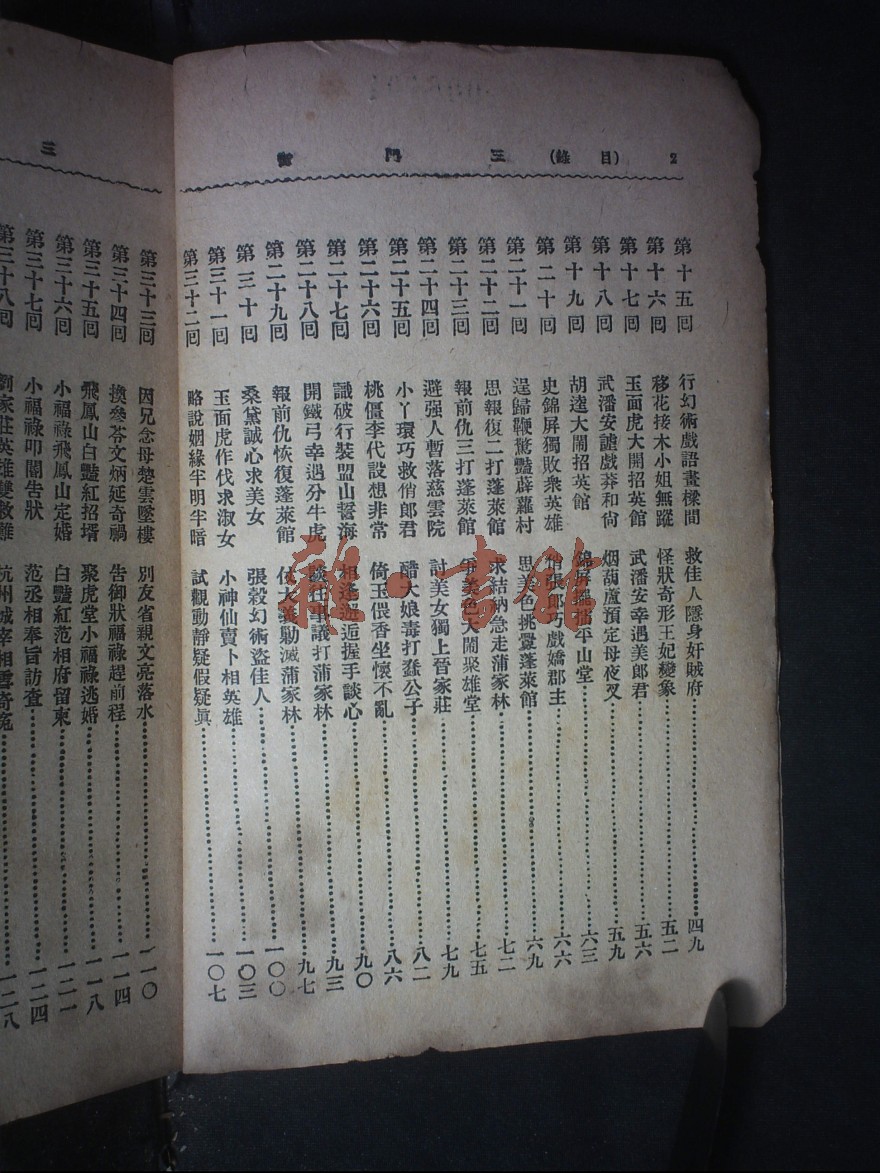 2 (目錄) 三門街
第十五回 行幻術戲語畫樑間 救佳人隱身奸賊府 四九
第十六回 移花接木小姐無蹤 怪狀奇形王妃變象 五二
第十七回 玉面虎大開招英館 武潘安幸遇美郎君 五六
第十八回 武潘安謔戲莽和尚 烟葫蘆預定母夜叉 五九
第十九回 胡逵大鬧招英館 錦屏擂平山堂 六三
第二十回 史錦屏獨敗衆英雄 張郎巧戲嬌郡主 六六
第二十一回 逞歸鞭驚豔薜蘿村 思美色挑釁蓬萊館 六九
第二十二回 思報復二打蓬萊館 求結納急走蒲家林 七二
第二十三回 報前仇三打蓬萊館 爭美色大鬧聚雄堂 七五
第二十四回 避强人暫落慈雲院 討美女獨上晉家莊 七九
第二十五回 小丫環巧救俏郎君 醋大娘毒打蠢公子 八二
第二十六回 桃僵李代設想非常 倚玉偎香坐懷不亂 八六
第二十七回 識破行裝盟山誓海 相逢邂逅握手談心 九〇
第二十八回 開鐵弓幸遇分牛虎 談往事議打蒲家林 九三
第二十九回 報前仇恢復蓬萊館 仗大義勦滅蒲家林 九七
第三十回 桑黛誠心求美女 張穀幻術盜佳人 一〇〇
第三十一回 玉面虎作伐求淑女 小神仙賣卜相英雄 一〇三
第三十二回 略說姻緣半明半暗 試觀動靜疑假疑眞 一〇七
三
第三十三回 因兄念母楚雲墜樓 別友省親文亮落水 一一〇
第三十四回 換參苓文炳延奇禍 告御狀福祿趕前程 一一四
第三十五回 飛鳳山白豔紅招壻 聚虎堂小福祿逃婚 一一八
第三十六回 小福祿飛鳳山定婚 白豔紅范相府留柬 一二一
第三十七回 小福祿叩閽告狀 范丞相奉旨訪查 一二四
第三十八回 劉家莊英雄雙救難 杭州城宰相雪奇寃 一二八
雜·書館